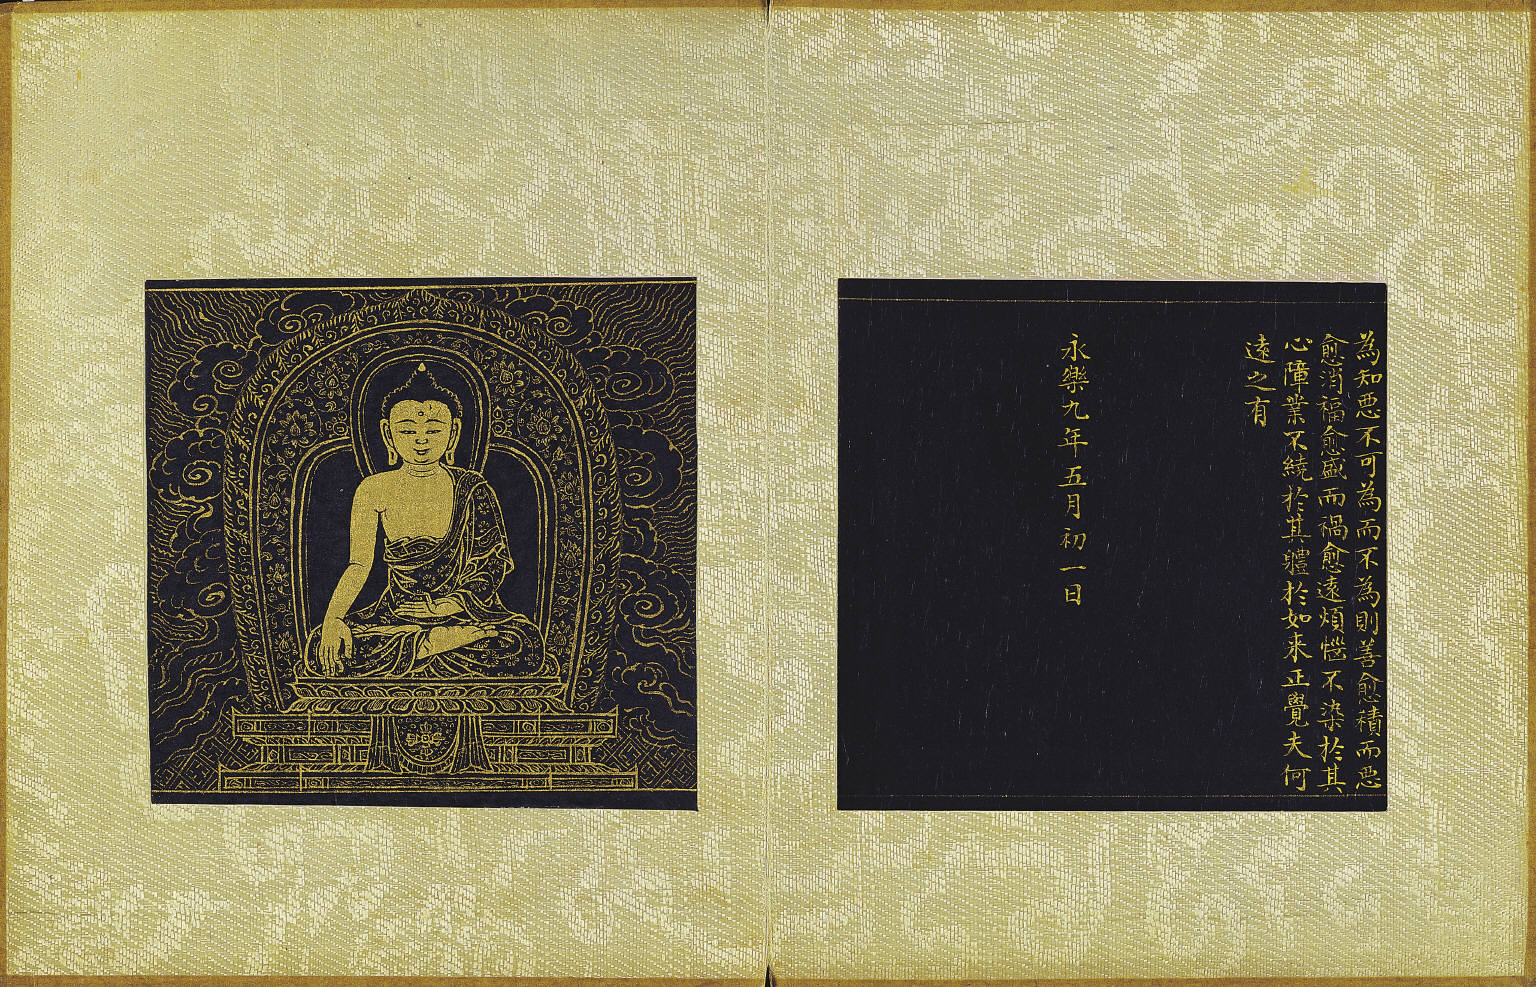 為知惡不可為而不為則善愈積而惡
愈消福愈盛而禍愈遠煩惱不染於其
心障業不繞於其軆於如来正覺夫何
遠之有
永樂九年五月初一日